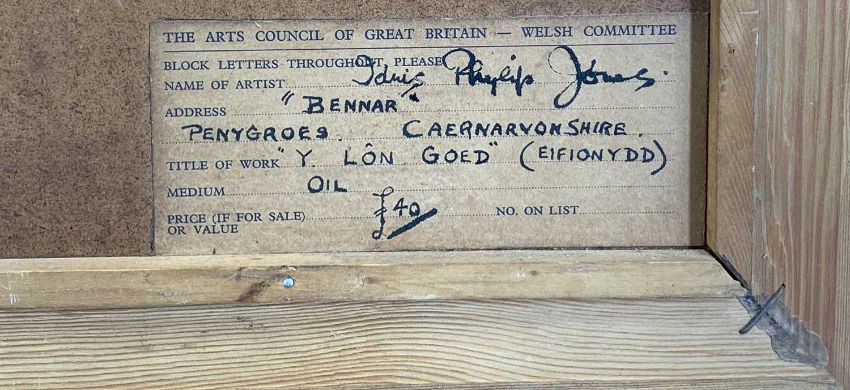 THE ARTS COUNCIL OF GREAT BRITAIN — WELSH COMMITTEE
BLOCK LETTERS THROUGHOUT, PLEASE
NAME OF ARTIST Idris Phylip Jones.
ADDRESS "BENNAR"
PENYGROES. CAERNARVONSHIRE.
TITLE OF WORK "Y LÔN GOED" (EIFIONYDD)
MEDIUM OIL
PRICE (IF FOR SALE) £40 NO. ON LIST
OR VALUE